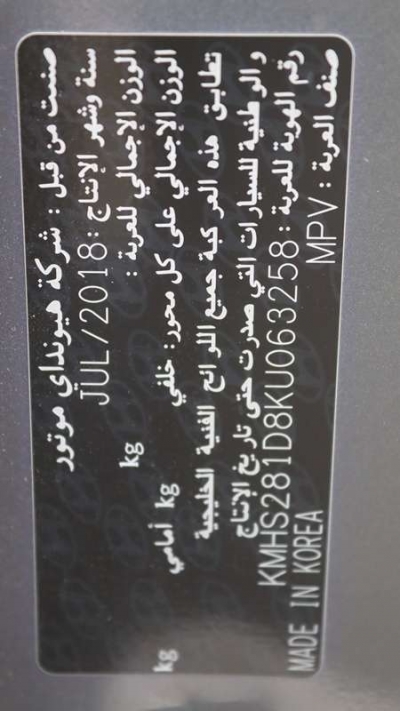 صنعت من قبل : شركة هيونداي موتور
سنة وشهر الإنتاج : JUL/2018
الوزن الإجمالي للعربة : kg
الوزن الإجمالي على كل محور: خلفي kg أمامي kg
تطابق هذه المركبة جميع اللوائح الفنية الخليجية
والوطنية للسيارات التي صدرت حتى تاريخ الإنتاج
رقم الهوية للعربة : KMHS281D8KU063258
صنف العربة : MPV
MADE IN KOREA